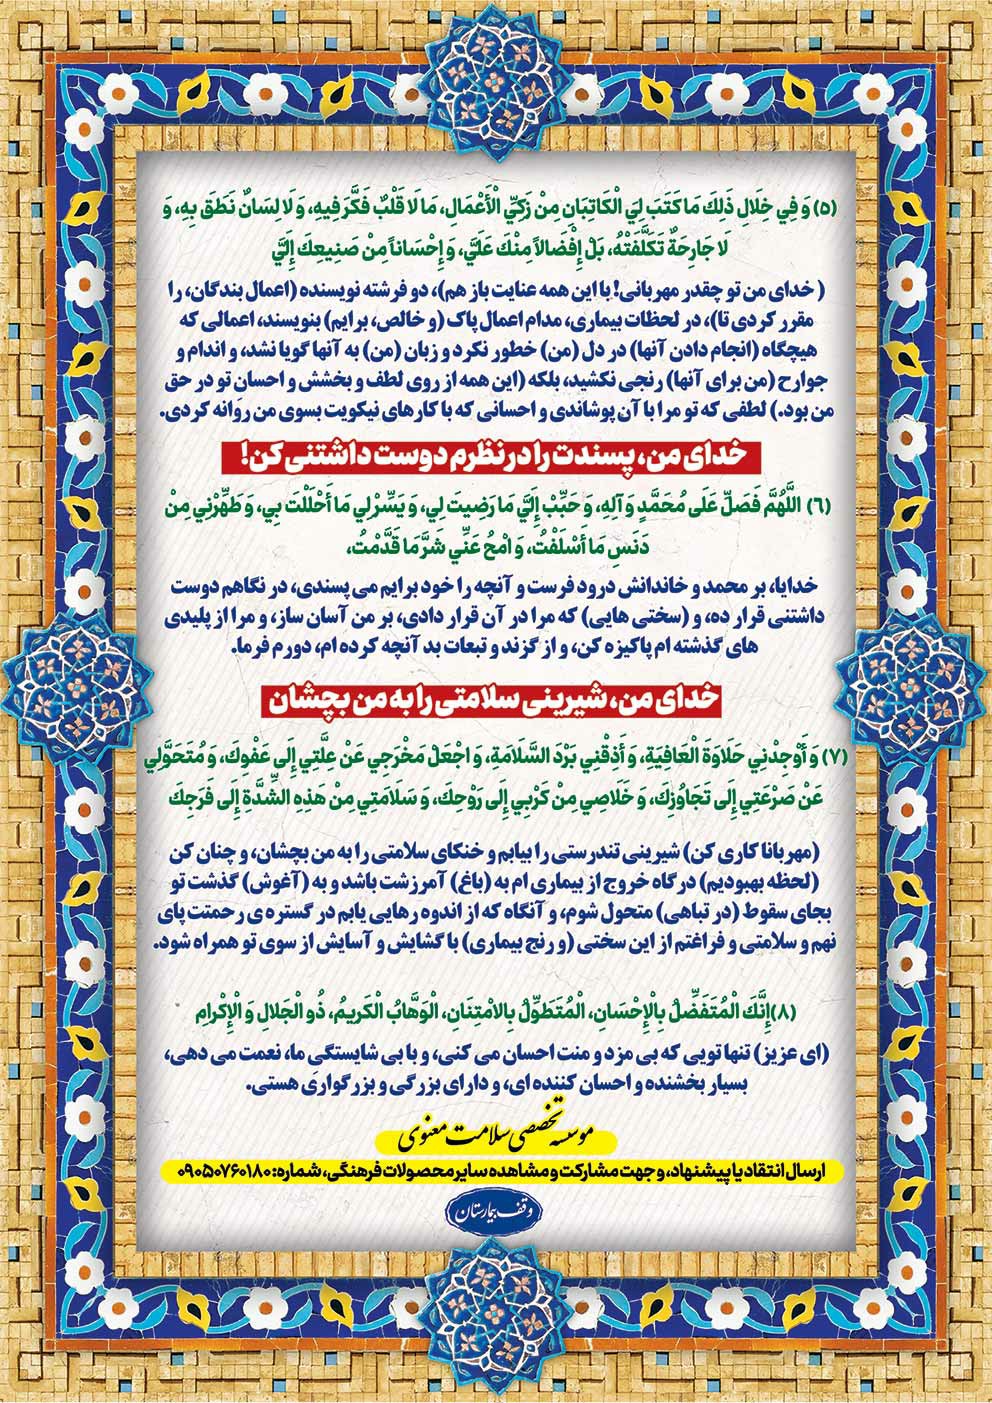 (۵) وَ فِي خِلَالِ ذَلِكَ مَا كَتَبَ لِيَ الْكَاتِبَانِ مِنْ زَكِيِّ الْأَعْمَالِ، مَا لَا قَلْبٌ فَكَّرَ فِيهِ، وَ لَا لِسَانٌ نَطَقَ بِهِ، وَ
لَا جَارِحَةٌ تَكَلَّفَتْهُ، بَلْ إِفْضَالاً مِنْكَ عَلَيَّ، وَ إِحْسَاناً مِنْ صَنِيعِكَ إِلَيَّ
( خدای من تو چقدر مهربانی! با این همه عنایت باز هم)، دو فرشته نویسنده (اعمال بندگان، را
مقرر کردی تا)، در لحظات بیماری، مدام اعمال پاک (و خالص، برایم) بنویسند، اعمالی که
هیچگاه (انجام دادن آنها) در دل (من) خطور نکرد و زبان (من) به آنها گویا نشد، و اندام و
جوارح (من برای آنها) رنجی نکشید، بلکه (این همه از روی لطف و بخشش و احسان تو در حق
من بود.) لطفی که تو مرا با آن پوشاندی و احسانی که با کارهای نیکویت بسوی من روانه کردی.
خدای من، پسندت را در نظرم دوست داشتنی کن!
(۶) اللَّهُمَّ فَصَلِّ عَلَى مُحَمَّدٍ وَ آلِهِ، وَ حَبِّبْ إِلَيَّ مَا رَضِيتَ لِي، وَ يَسِّرْ لِي مَا أَحْلَلْتَ بِي، وَ طَهِّرْنِي مِنْ
دَنَسِ مَا أَسْلَفْتُ، وَ امْحُ عَنِّي شَرَّ مَا قَدَّمْتُ،
خدایا، بر محمد و خاندانش درود فرست و آنچه را خود برایم می پسندی، در نگاهم دوست
داشتنی قرار ده، و (سختی هایی) که مرا در آن قرار دادی، بر من آسان ساز، و مرا از پلیدی
های گذشته ام پاکیزه کن، و از گزند و تبعات بد آنچه کرده ام، دورم فرما.
خدای من، شیرینی سلامتی را به من بچشان
(۷) وَ أَوْجِدْنِي حَلَاوَةَ الْعَافِيَةِ، وَ أَذِقْنِي بَرْدَ السَّلَامَةِ، وَ اجْعَلْ مَخْرَجِي عَنْ عِلَّتِي إِلَى عَفْوِكَ، وَ مُتَحَوَّلِي
عَنْ صَرْعَتِي إِلَى تَجَاوُزِكَ، وَ خَلَاصِي مِنْ كَرْبِي إِلَى رَوْحِكَ، وَ سَلَامَتِي مِنْ هَذِهِ الشِّدَّةِ إِلَى فَرَجِكَ
(مهربانا کاری کن) شیرینی تندرستی را بیابم و خنکای سلامتی را به من بچشان، و چنان کن
(لحظه بهبودیم) درگاه خروج از بیماری ام به (باغ) آمرزشت باشد و به (آغوش) گذشت تو
بجای سقوط (در تباهی) متحول شوم، و آنگاه که از اندوه رهایی یابم در گستره ی رحمتت پای
نهم و سلامتی و فراغتم از این سختی (و رنج بیماری) با گشایش و آسایش از سوی تو همراه شود.
(۸)إِنَّكَ الْمُتَفَضِّلُ بِالْإِحْسَانِ، الْمُتَطَوِّلُ بِالامْتِنَانِ، الْوَهَّابُ الْكَرِيمُ، ذُو الْجَلَالِ وَ الْإِكْرَامِ
(ای عزیز) تنها تویی که بی مزد و منت احسان می کنی، و با بی شایستگی ما، نعمت می دهی،
بسیار بخشنده و احسان کننده ای، و دارای بزرگی و بزرگواری هستی.
موسسه تخصصی سلامت معنوی
ارسال انتقاد یا پیشنهاد، و جهت مشارکت و مشاهده سایر محصولات فرهنگی، شماره: ۰۹۰۵۰۷۶۰۱۸۰
وقف بیمارستان